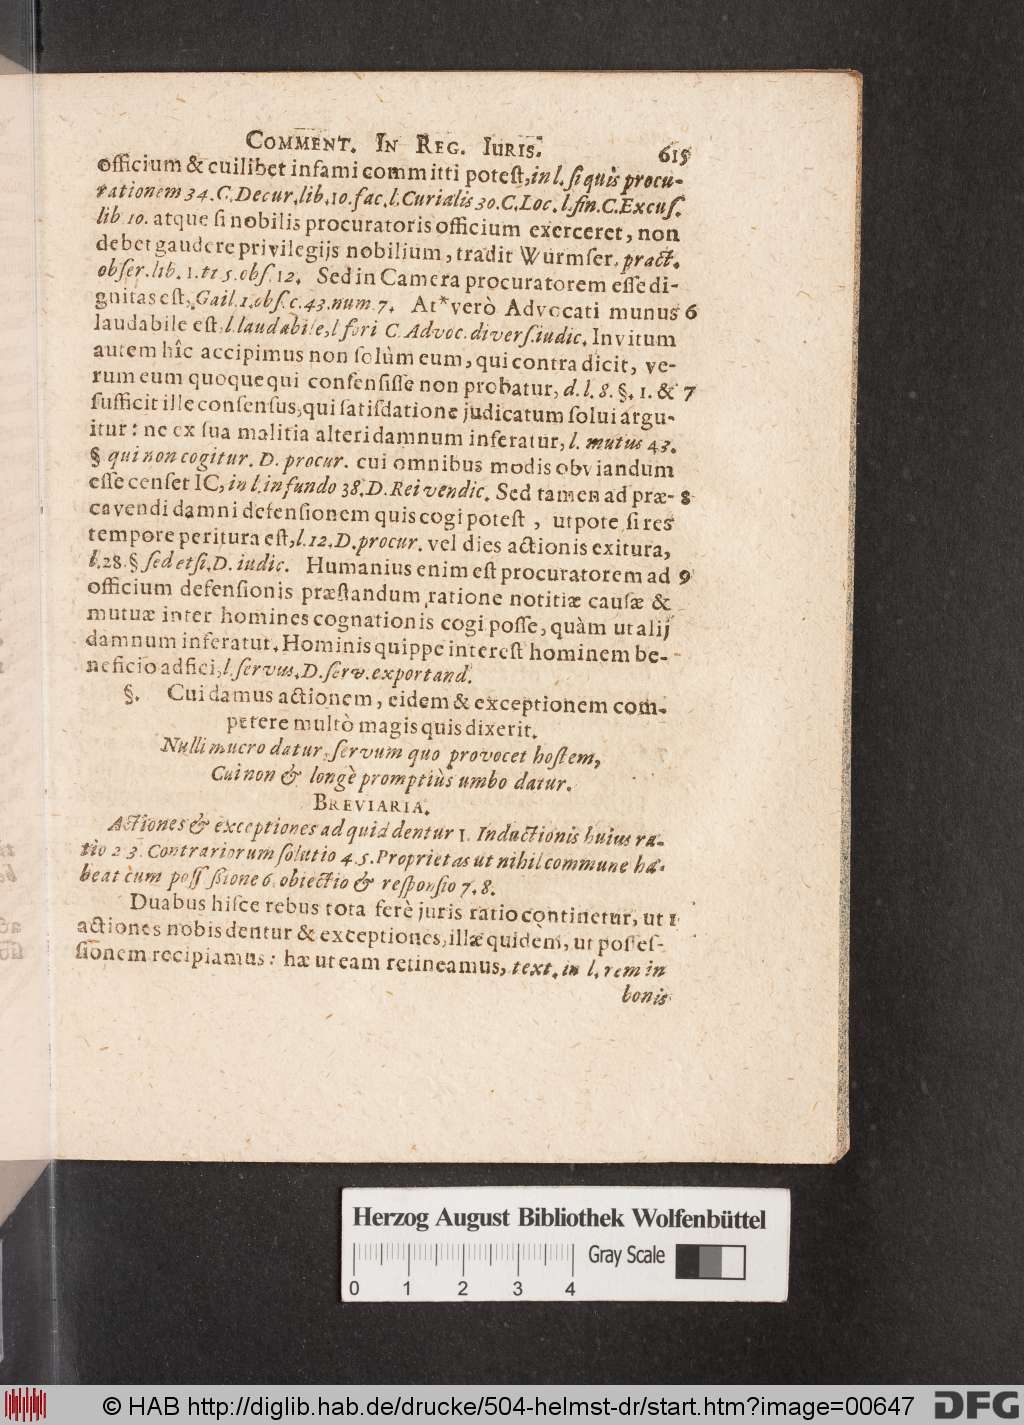 COMMENT. IN REG. IURIS. 615
officium & cuilibet infami committi potest, in l. si quis procu-
rationem 34. C. Decur. lib. 10. fac. l. Curialis 30. C. Loc. l. fin. C. Excus.
lib 10. atque si nobilis procuratoris officium exerceret, non
debet gaudere privilegijs nobilium, tradit Wurmser. pract.
obser. lib. 1. tt 5. obs. 12. Sed in Camera procuratorem esse di-
gnitas est, Gail. 1. obs. c. 43. num 7. At* verò Advocati munus 6
laudabile est, l. laudabile, l fori C. Advoc. divers. iudic. Invitum
autem hîc accipimus non solùm eum, qui contra dicit, ve-
rum eum quoque qui consensisse non probatur, d. l. 8. §. 1. & 7
sufficit ille consensus, qui satisdatione judicatum solui argu-
itur: ne ex sua malitia alteri damnum inferatur, l. mutus 43.
§ qui non cogitur. D. procur. cui omnibus modis obviandum
esse censet IC, in l. in fundo 38. D. Rei vendic. Sed tamen ad præ- 8
cavendi damni defensionem quis cogi potest, utpote si res
tempore peritura est, l. 12. D. procur. vel dies actionis exitura,
l. 28. § sed etsi. D. iudic. Humanius enim est procuratorem ad 9
officium defensionis præstandum ratione notitiæ causæ &
mutuæ inter homines cognationis cogi posse, quàm ut alij
damnum inferatur. Hominis quippe interest hominem be-
neficio adfici, l. servus. D. serv. exportand.
§. Cui damus actionem, eidem & exceptionem com-
petere multò magis quis dixerit.
Nulli mucro datur, servum quo provocet hostem,
Cui non & longè promptiùs umbo datur.
BREVIARIA.
Actiones & exceptiones ad quid dentur 1. Inductionis huius ra-
tio 2 3. Contrariorum solutio 4. 5. Proprietas ut nihil commune ha-
beat cum possessione 6. obiectio & responsio 7. 8.
Duabus hisce rebus tota ferè juris ratio continetur, ut 1
actiones nobis dentur & exceptiones, illæ quidem, ut posses-
sionem recipiamus: hæ ut eam retineamus, text. in l. rem in
bonis
Herzog August Bibliothek Wolfenbüttel
Gray Scale
0 1 2 3 4
© HAB http://diglib.hab.de/drucke/504-helmst-dr/start.htm?image=00647 DFG